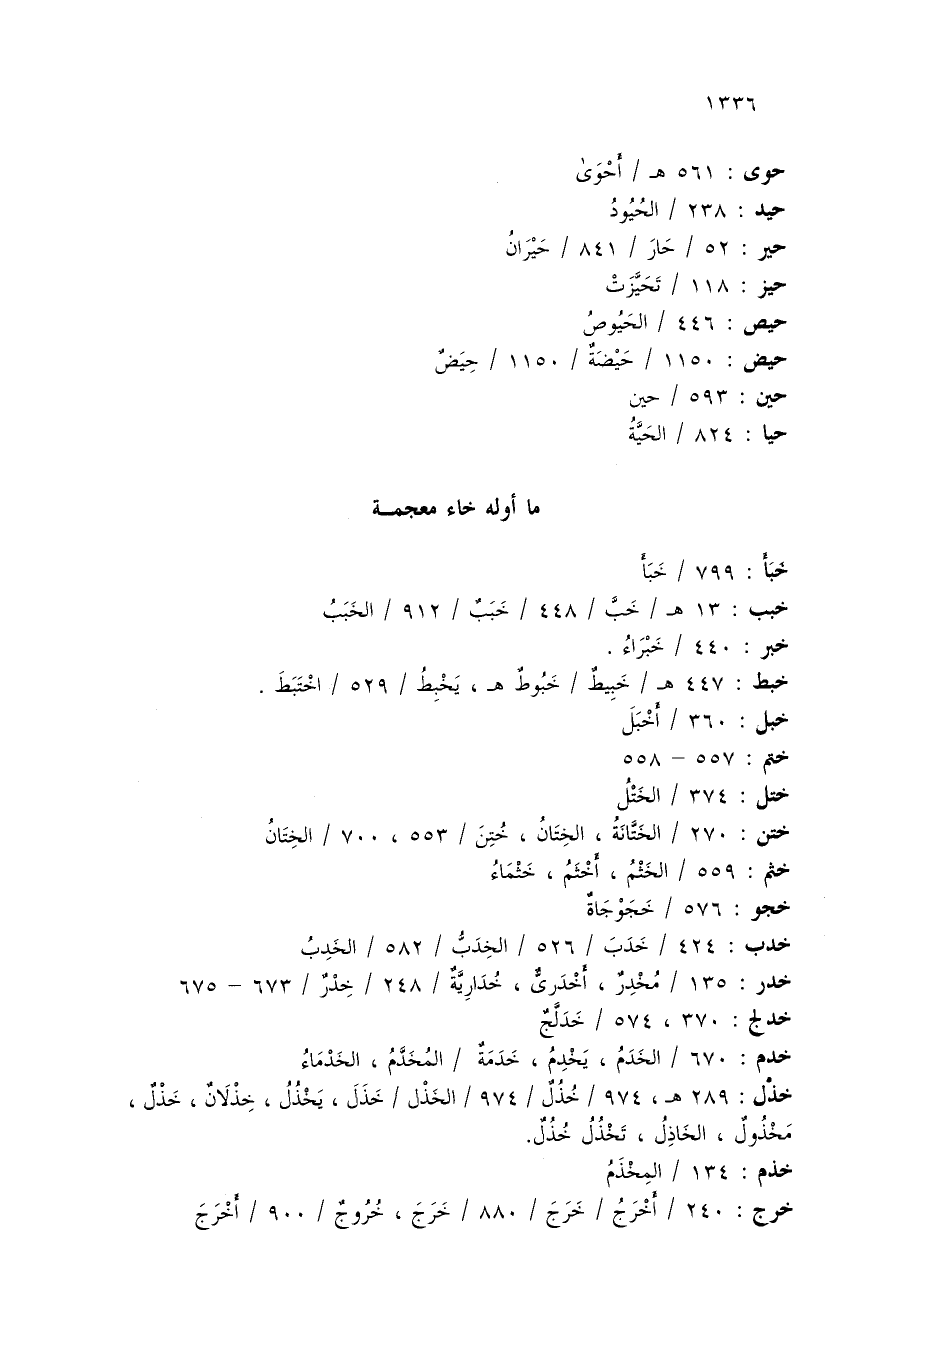 ١٣٣٦
حوى : ٥٦١ هـ / أَحْوَىٰ
حيد : ٢٣٨ / الحُيُودُ
حير : ٥٢ / حَارَ / ٨٤١ / حَيْرَانُ
حيز : ١١٨ / تَحَيَّزَتْ
حيص : ٤٤٦ / الحَيُوصُ
حيض : ١١٥٠ / حَيْضَةٌ / ١١٥٠ / حِيَضٌ
حين : ٥٩٣ / حين
حيا : ٨٢٤ / الحَيَّةُ
ما أوله خاء معجمـة
خَبَأَ : ٧٩٩ / خَبَأَ
خبب : ١٣ هـ / خَبَّ / ٤٤٨ / خَبَبٌ / ٩١٢ / الخَبَبُ
خبر : ٤٤٠ / خَبْرَاءُ .
خبط : ٤٤٧ هـ / خَبِيطٌ / خَبُوطٌ هـ ، يَخْبِطُ / ٥٢٩ / اخْتَبَطَ .
خبل : ٣٦٠ / أَخْبَلَ
ختم : ٥٥٧ – ٥٥٨
ختل : ٣٧٤ / الخَتْلُ
ختن : ٢٧٠ / الخَتَّانَةُ ، الخِتَانُ ، خُتِنَ / ٥٥٣ ، ٧٠٠ / الخِتَانُ
خثم : ٥٥٩ / الخَثْمُ ، أَخْثَمُ ، خَثْمَاءُ
خجو : ٥٧٦ / خَجَوْجَاةٌ
خدب : ٤٢٤ / خَدَبَ / ٥٢٦ / الخِدَبُّ / ٥٨٢ / الخَدِبُ
خدر : ١٣٥ / مُخْدِرٌ ، أَخْدَرِىٌّ ، خُدَارِيَّةٌ / ٢٤٨ / خِدْرٌ / ٦٧٣ – ٦٧٥
خدلج : ٣٧٠ ، ٥٧٤ / خَدَلَّجٌ
خدم : ٦٧٠ / الخَدَمُ ، يَخْدِمُ ، خَدَمَةٌ / المُخَدَّمُ ، الخَدْمَاءُ
خذل : ٢٨٩ هـ ، ٩٧٤ / خُذُلٌ / ٩٧٤ / الخَذْل / خَذَلَ ، يَخْذُلُ ، خِذْلَانٌ ، خَذْلٌ ،
مَخْذُولٌ ، الخَاذِلُ ، تَخْذُلُ خُذُلٌ.
خذم : ١٣٤ / المِخْذَمُ
خرج : ٢٤٠ / أَخْرَجُ / خَرَجَ / ٨٨٠ / خَرَجَ ، خُرُوجٌ / ٩٠٠ / أَخْرَجَ